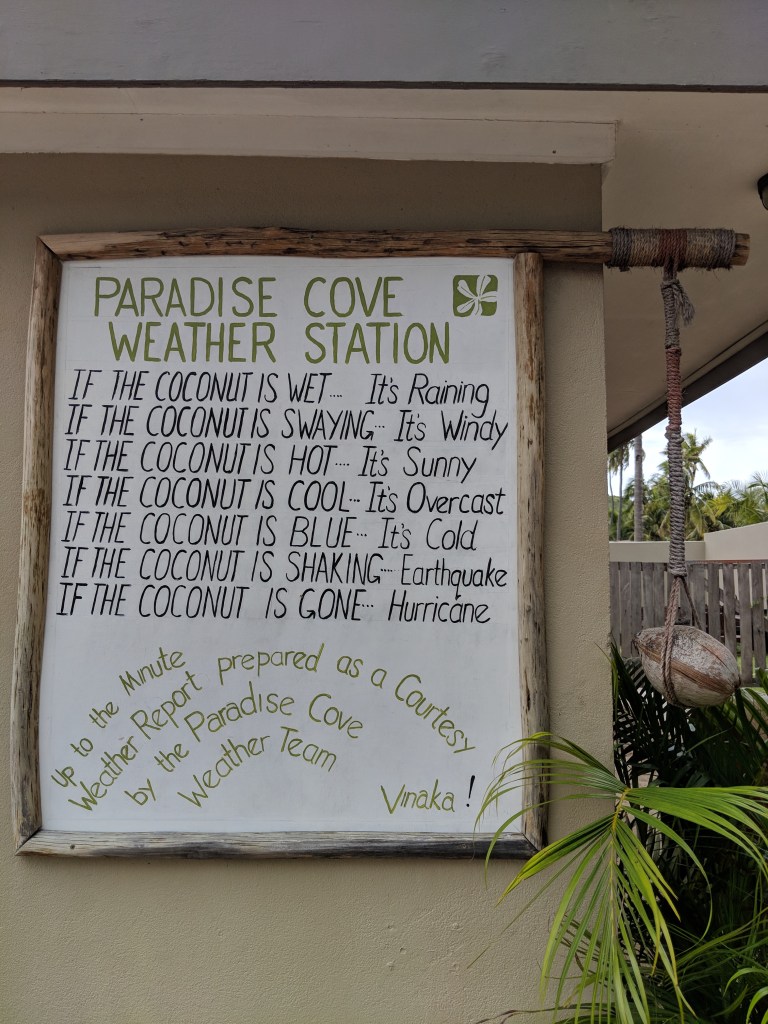 PARADISE COVE
WEATHER STATION
IF THE COCONUT IS WET.... It's Raining
IF THE COCONUT IS SWAYING... It's Windy
IF THE COCONUT IS HOT.... It's Sunny
IF THE COCONUT IS COOL... It's Overcast
IF THE COCONUT IS BLUE... It's Cold
IF THE COCONUT IS SHAKING.... Earthquake
IF THE COCONUT IS GONE... Hurricane
Up to the Minute
Weather Report prepared as a Courtesy
by the Paradise Cove
Weather Team
Vinaka!